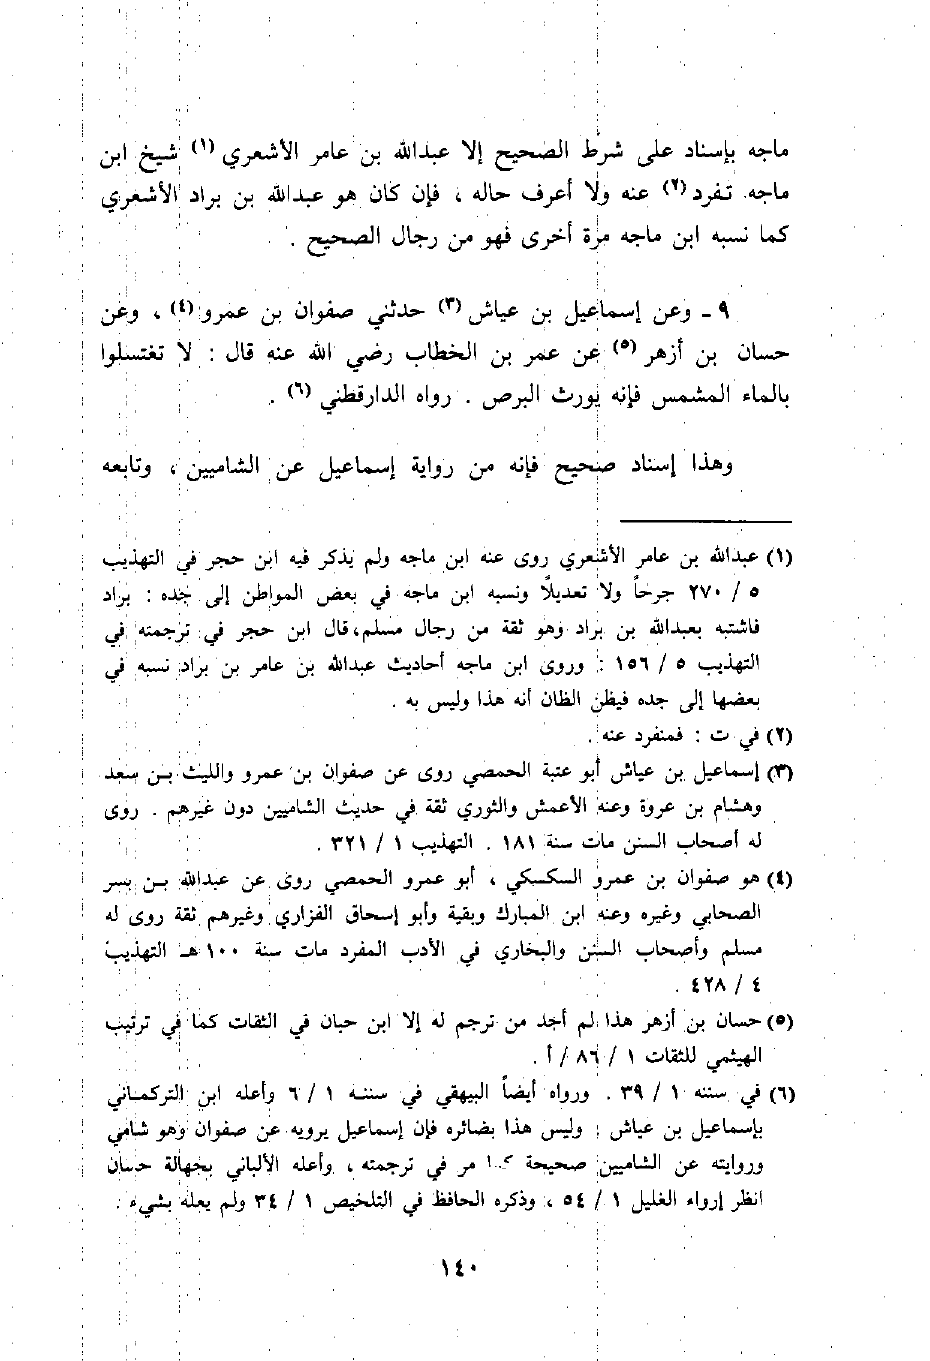 ماجه بإسناد على شرط الصحيح إلا عبدالله بن عامر الأشعري (١) شيخ ابن
ماجه تفرد (٢) عنه ولا أعرف حاله ، فإن كان هو عبدالله بن براد الأشعري
كما نسبه ابن ماجه مرة أخرى فهو من رجال الصحيح .
٩ ـ وعن إسماعيل بن عياش (٣) حدثني صفوان بن عمرو (٤) ، وعن
حسان بن أزهر (٥) عن عمر بن الخطاب رضي الله عنه قال : لا تغتسلوا
بالماء المشمس فإنه يورث البرص . رواه الدارقطني (٦) .
وهذا إسناد صحيح فإنه من رواية إسماعيل عن الشاميين ، وتابعه
(١) عبدالله بن عامر الأشعري روى عنه ابن ماجه ولم يذكر فيه ابن حجر في التهذيب
٥ / ٢٧٠ جرحاً ولا تعديلاً ونسبه ابن ماجه في بعض المواطن إلى جده : براد
فاشتبه بعبدالله بن براد وهو ثقة من رجال مسلم، قال ابن حجر في ترجمته في
التهذيب ٥ / ١٥٦ : وروى ابن ماجه أحاديث عبدالله بن عامر بن براد نسبه في
بعضها إلى جده فيظن الظان أنه هذا وليس به .
(٢) في ت : فمنفرد عنه .
(٣) إسماعيل بن عياش أبو عتبة الحمصي روى عن صفوان بن عمرو والليث بن سعد
وهشام بن عروة وعنه الأعمش والثوري ثقة في حديث الشاميين دون غيرهم . روى
له أصحاب السنن مات سنة ١٨١ . التهذيب ١ / ٣٢١ .
(٤) هو صفوان بن عمرو السكسكي ، أبو عمرو الحمصي روى عن عبدالله بن بسر
الصحابي وغيره وعنه ابن المبارك وبقية وأبو إسحاق الفزاري وغيرهم ثقة روى له
مسلم وأصحاب السنن والبخاري في الأدب المفرد مات سنة ١٠٠ هـ التهذيب
٤ / ٤٢٨ .
(٥) حسان بن أزهر هذا لم أجد من ترجم له إلا ابن حبان في الثقات كما في ترتيب
الهيثمي للثقات ١ / ٨٦ / أ .
(٦) في سننه ١ / ٣٩ . ورواه أيضاً البيهقي في سننه ١ / ٦ وأعله ابن التركماني
بإسماعيل بن عياش : وليس هذا بضائره فإن إسماعيل يرويه عن صفوان وهو شامي
وروايته عن الشاميين صحيحة كما مر في ترجمته ، وأعله الألباني بجهالة حسان
انظر إرواء الغليل ١ / ٥٤ ، وذكره الحافظ في التلخيص ١ / ٣٤ ولم يعله بشيء .
١٤٠